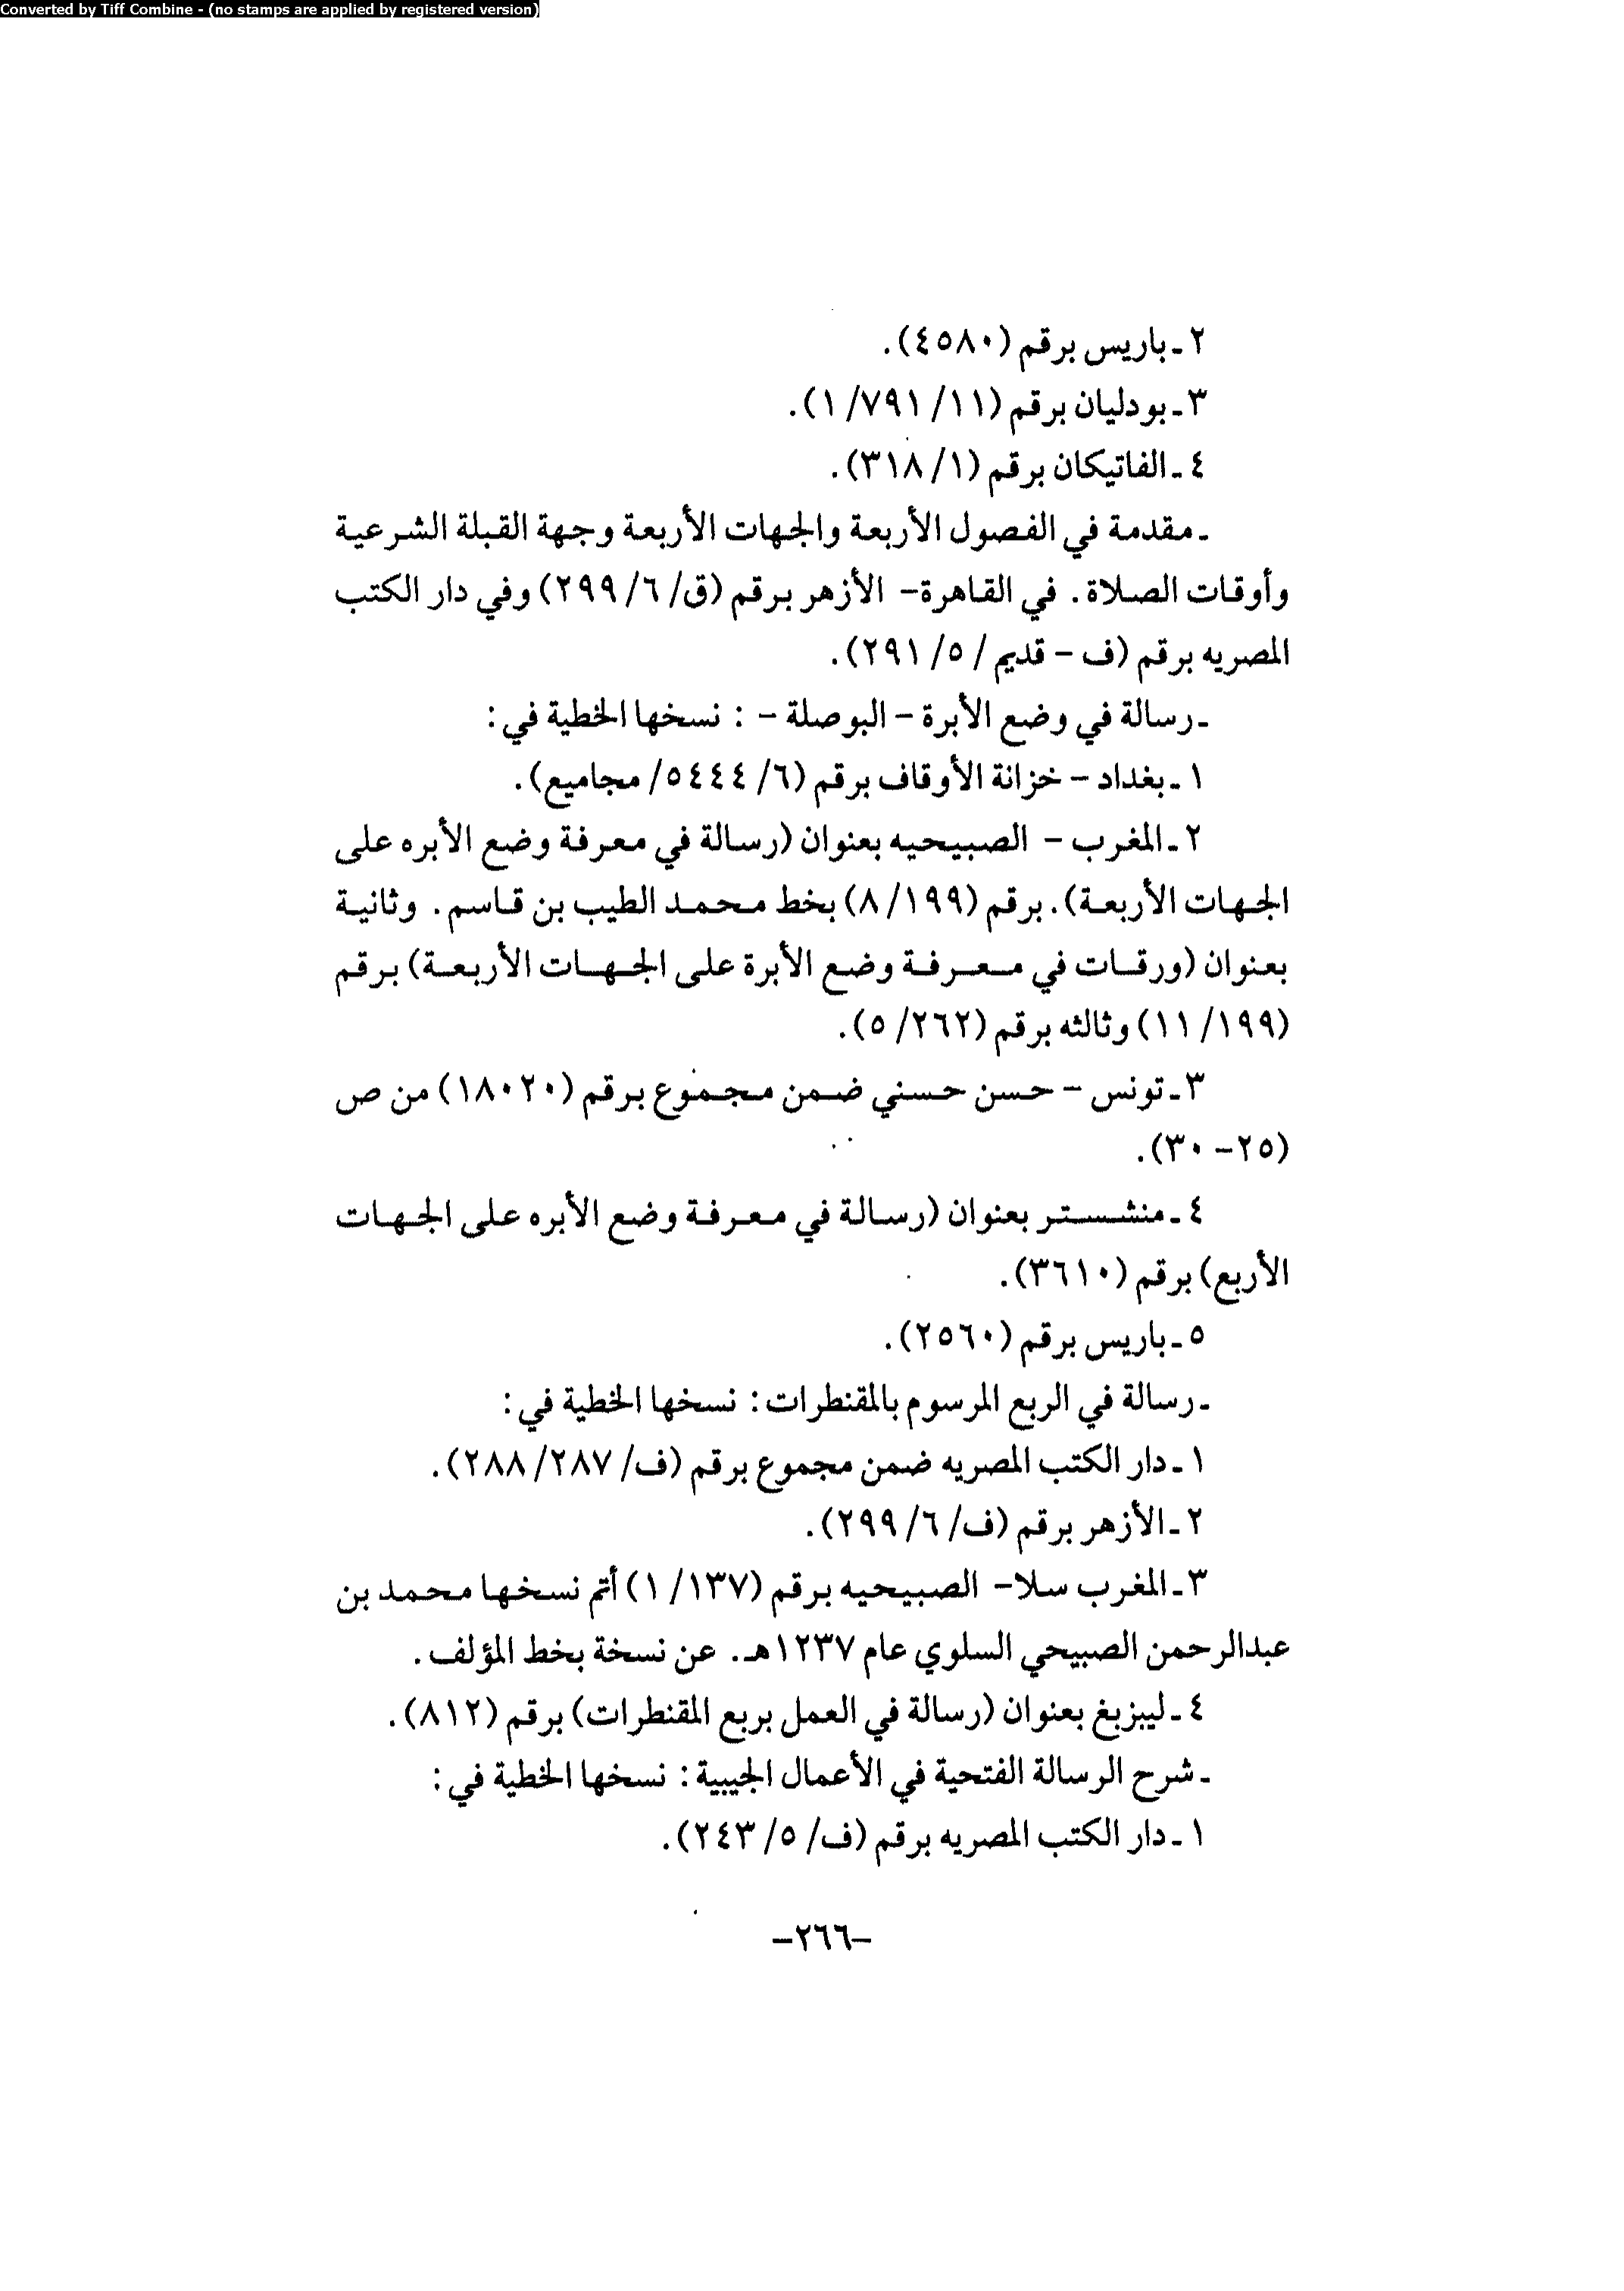 Converted by Tiff Combine - (no stamps are applied by registered version)
٢ ـ باريس برقم (٤٥٨٠).
٣ ـ بودليان برقم (١١ /٧٩١ /١).
٤ ـ الفاتيكان برقم (١ /٣١٨).
ـ مقدمة في الفصول الأربعة والجهات الأربعة وجهة القبلة الشرعية
وأوقات الصلاة. في القاهرة- الأزهر برقم (ق/ ٦ /٢٩٩) وفي دار الكتب
المصريه برقم (ف - قديم / ٥ /٢٩١).
ـ رسالة في وضع الأبرة - البوصلة - : نسخها الخطية في:
١ ـ بغداد - خزانة الأوقاف برقم (٦ /٥٤٤٤ / مجاميع).
٢ ـ المغرب - الصبيحيه بعنوان (رسالة في معرفة وضع الأبره على
الجهات الأربعة). برقم (١٩٩ /٨) بخط محمد الطيب بن قاسم. وثانية
بعنوان (ورقات في معرفة وضع الأبرة على الجهات الأربعة) برقم
(١٩٩ /١١) وثالثه برقم (٢٦٢ /٥).
٣ ـ تونس - حسن حسني ضمن مجموع برقم (١٨٠٢٠) من ص
(٢٥- ٣٠).
٤ ـ منشستر بعنوان (رسالة في معرفة وضع الأبره على الجهات
الأربع) برقم (٣٦١٠).
٥ ـ باريس برقم (٢٥٦٠).
ـ رسالة في الربع المرسوم بالمقنطرات: نسخها الخطية في:
١ ـ دار الكتب المصريه ضمن مجموع برقم (ف/ ٢٨٧ /٢٨٨).
٢ ـ الأزهر برقم (ف/ ٦ /٢٩٩).
٣ ـ المغرب سلا- الصبيحيه برقم (١٣٧ /١) أتم نسخها محمد بن
عبدالرحمن الصبيحي السلوي عام ١٢٣٧هـ. عن نسخة بخط المؤلف.
٤ ـ ليبزيغ بعنوان (رسالة في العمل بربع المقنطرات) برقم (٨١٢).
ـ شرح الرسالة الفتحية في الأعمال الجيبية: نسخها الخطية في:
١ ـ دار الكتب المصريه برقم (ف/ ٥ /٢٤٣).
-٢٦٦-